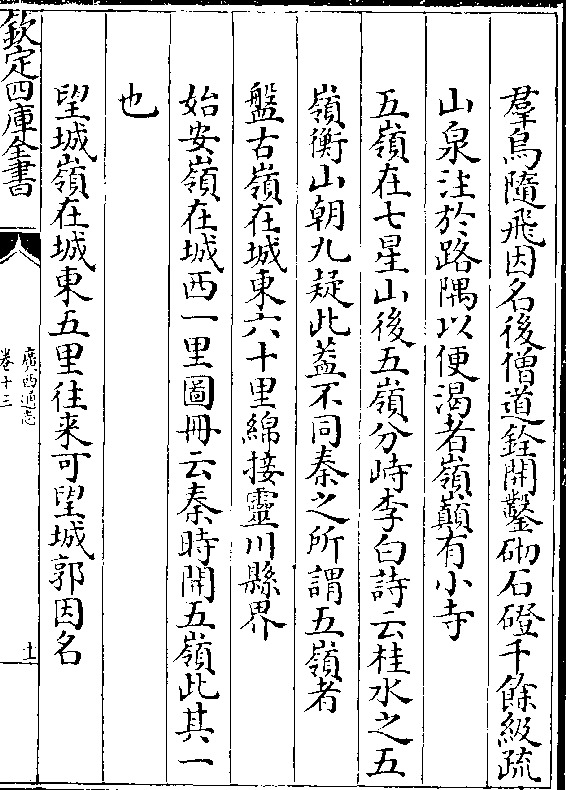 羣鳥隨飛因名後僧道銓開鑿砌石磴千餘級疏
山泉注於路隅以便渴者嶺巔有小寺
五嶺在七星山後五嶺分峙李白詩云桂水之五
嶺衡山朝九疑此葢不同秦之所謂五嶺者
盤古嶺在城東六十里綿接靈川縣界
始安嶺在城西一里圖冊云秦時開五嶺此其一
也
望城嶺在城東五里往来可望城郭因名
欽定四庫全書
廣西通志
卷十三
十一